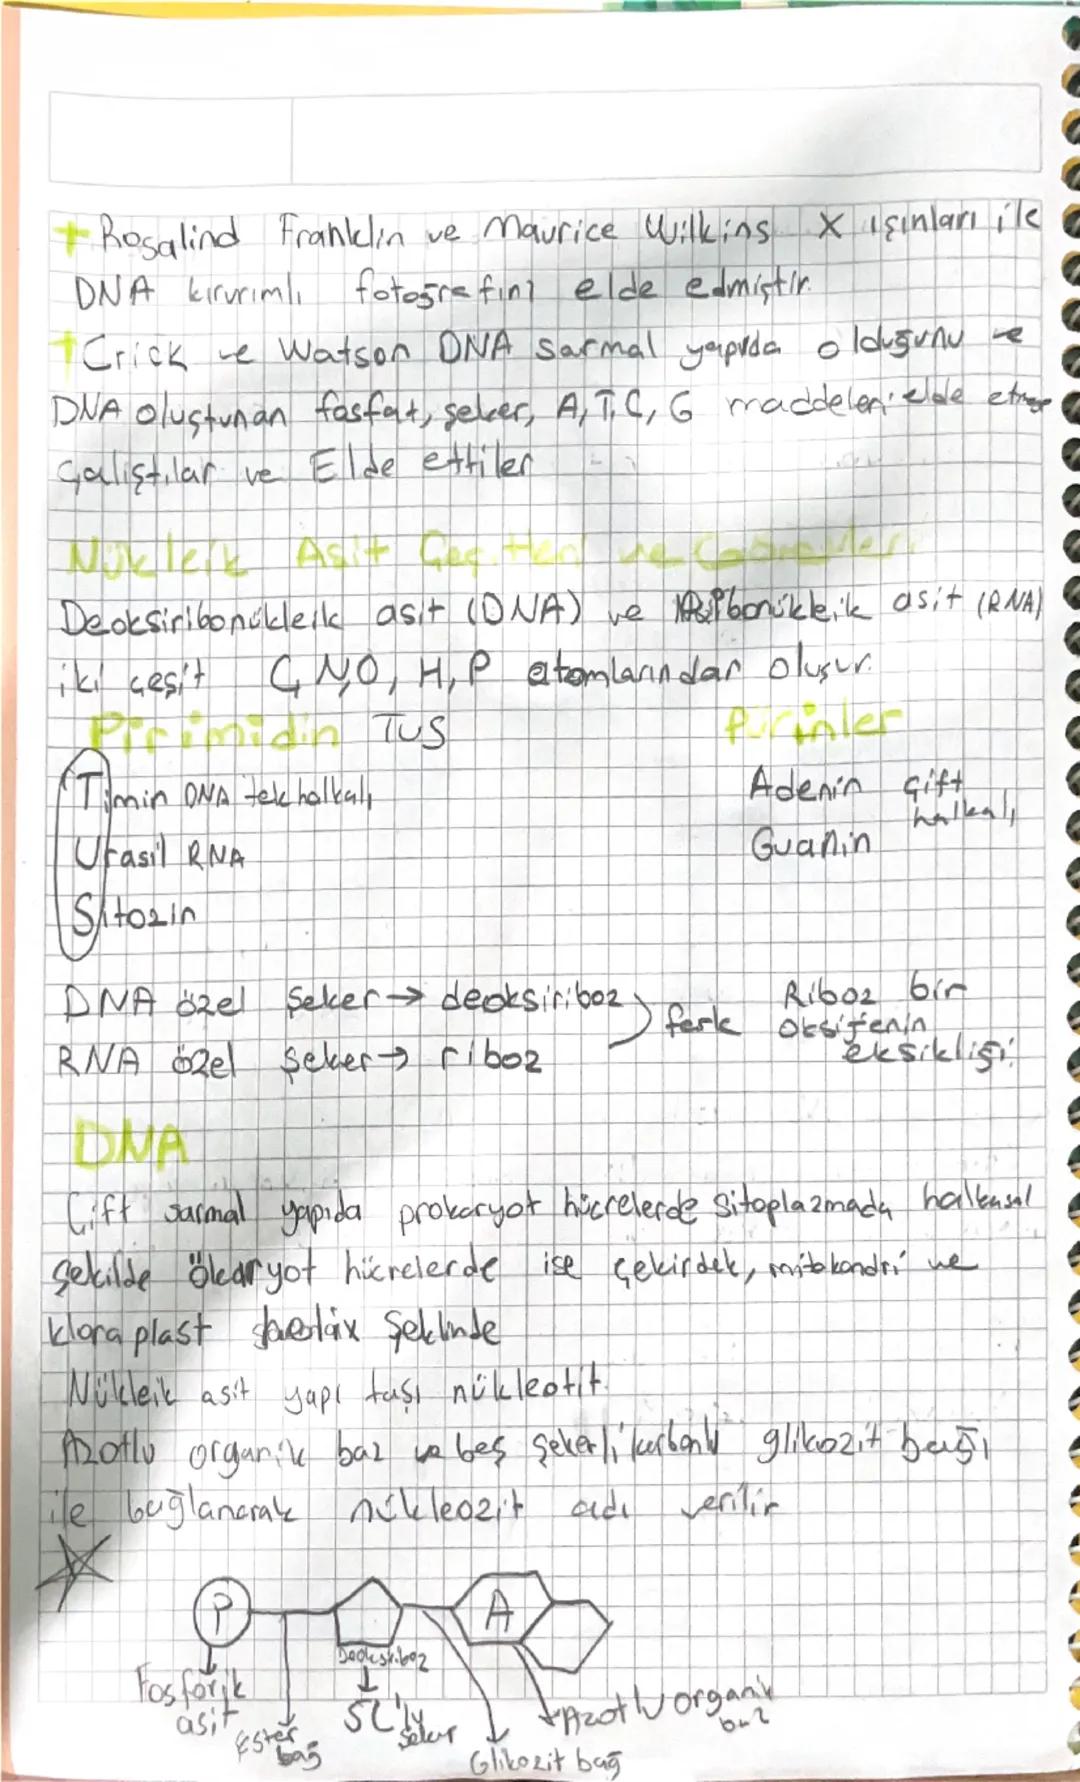 + Rosalind Franklin ve Maurice Wilkins X ışınları ile
DNA kırurımlı fotoğrafını elde edmiştir.
+ Crick ve Watson DNA sarmal yapıda olduğunu ve
DNA oluşturan fosfat, şeker, A, T, C, G maddeleri elde etmeye
çalıştılar ve Elde ettiler
Nükleik Asit Çeşitleri ve Görevleri
Deoksiribonükleik asit (DNA) ve Ribonükleik asit (RNA)
iki çeşit C, N, O, H, P atomlarından oluşur.
Pirimidin TUS
Pürinler
Timin DNA tek halkalı
Adenin çift halkalı
Urasil RNA
Guanin
Sitozin
DNA özel Şeker → deoksiriboz
RNA özel Şeker → riboz
fark Riboz bir
oksijenin
eksikliği
DNA
Çift sarmal yapıda prokaryot hücrelerde Sitoplazmada halkasal
şekilde ökaryot hücrelerde ise çekirdek, mitokondri ve
kloraplast şeklinde
Nükleik asit yapı taşı nükleotit.
Azotlu organik baz ve beş şekerli karbonlu glikozit bağı
ile bağlanarak nükleozit adı verilir
P
A
Deoksiriboz
Fosforik
asit
Ester
bağ
5C'lu
Şeker
Azotlu organik
baz
Glikozit bağ